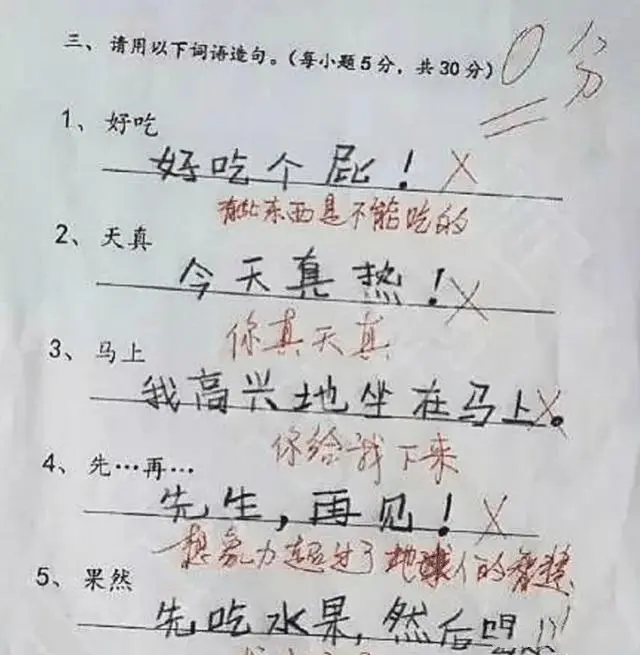 三、请用以下词语造句。(每小题5分,共30分) 0分
1、好吃
好吃个屁! ×
有些东西是不能吃的
2、天真
今天真热! ×
你真天真
3、马上
我高兴地坐在马上。 ×
你给我下来
4、先…再…
先生,再见! ×
想象力超过了地球人的智慧
5、果然
先吃水果,然后